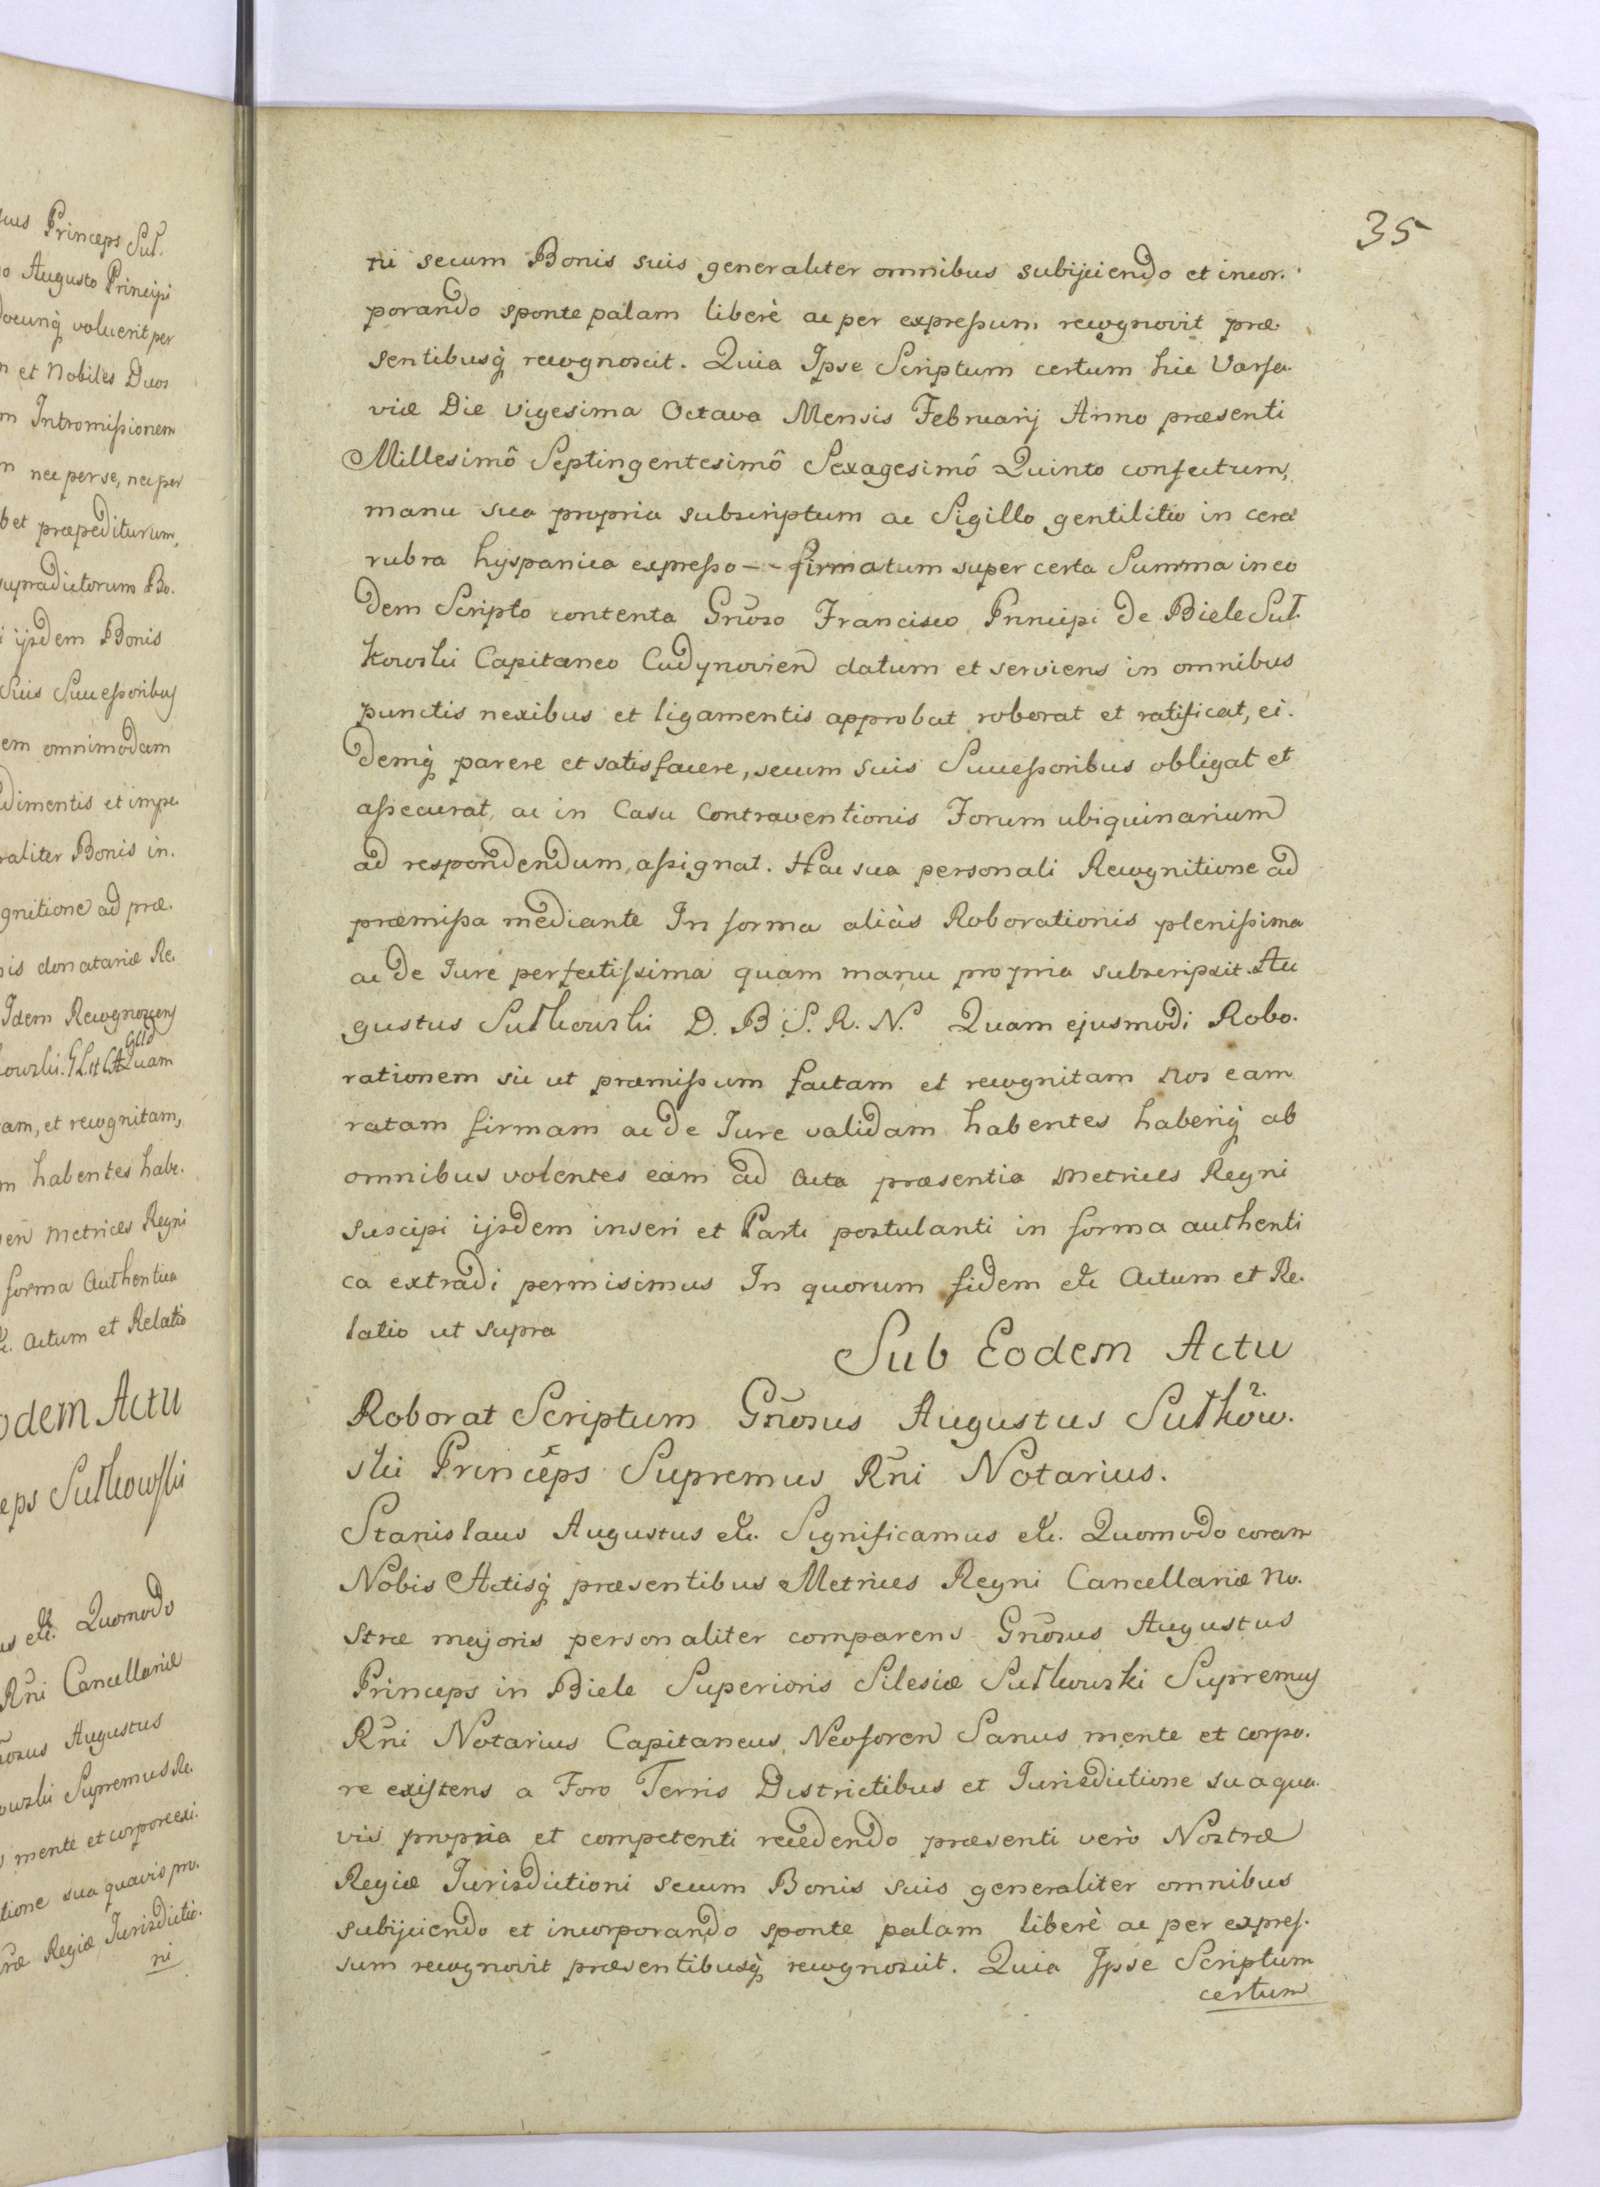 35
ni secum Bonis suis generaliter omnibus subijciendo et incor.
porando sponte palam liberè ac per expreßum recognovit præ.
sentibusq́ recognoscit. Quia Ipse Scriptum certum hic Varsa.
viæ Die vigesima Octava Mensis Februarij Anno præsenti
Millesimô Septingentesimô Sexagesimô Quinto confectum,
manu sua propria subscriptum ac Sigillo gentilitio in cera
rubra hyspanica expreßo -- firmatum super certa Summa in eo
dem Scripto contenta Gnoso Francisco Principi de Biele Suł.
kowski Capitaneo Cudynovien datum et serviens in omnibus
punctis nexibus et ligamentis approbat roborat et ratificat, ei.
demq́ parere et satisfacere, secum suis Succeßoribus obligat et
aßecurat, ac in Casu Contraventionis Forum ubiquinarium
ad respondendum, aßignat. Hac sua personali Recognitione ad
præmißa mediante In forma aliàs Roborationis plenißima
ac de Iure perfectissima quam manu propria subscripsit. Au
gustus Sułkowski D. B. S. R. N. Quam ejusmodi Robo.
rationem sic ut præmißum factam et recognitam Nos eam
ratam firmam ac de Iure validam habentes haberiq́ ab
omnibus volentes eam ad Acta præsentia Metrices Regni
suscipi ijsdem inseri et Parti postulanti in forma authenti
ca extradi permisimus In quorum fidem etc Actum et Re.
latio ut supra
Sub Eodem Actu
Roborat Scriptum Gnosus Augustus Sułków.
ski Princeps Supremus Rni Notarius.
Stanislaus Augustus etc. Significamus etc. Quomodo coram
Nobis Actisq́ præsentibus Metrices Regni Cancellariæ No.
stræ majoris personaliter comparens Gnosus Augustus
Princeps in Biele Superioris Silesiæ Sułkowski Supremus
Rni Notarius Capitaneus Neoforen Sanus mente et corpo.
re existens a Foro Terris Districtibus et Iurisdictione sua qua.
vis propria et competenti recedendo præsenti verò Nostræ
Regiæ Iurisdictioni secum Bonis suis generaliter omnibus
subijciendo et incorporando sponte palam liberè ac per expres.
sum recognovit præsentibusq́ recognoscit. Quia Ipse Scriptum
certum